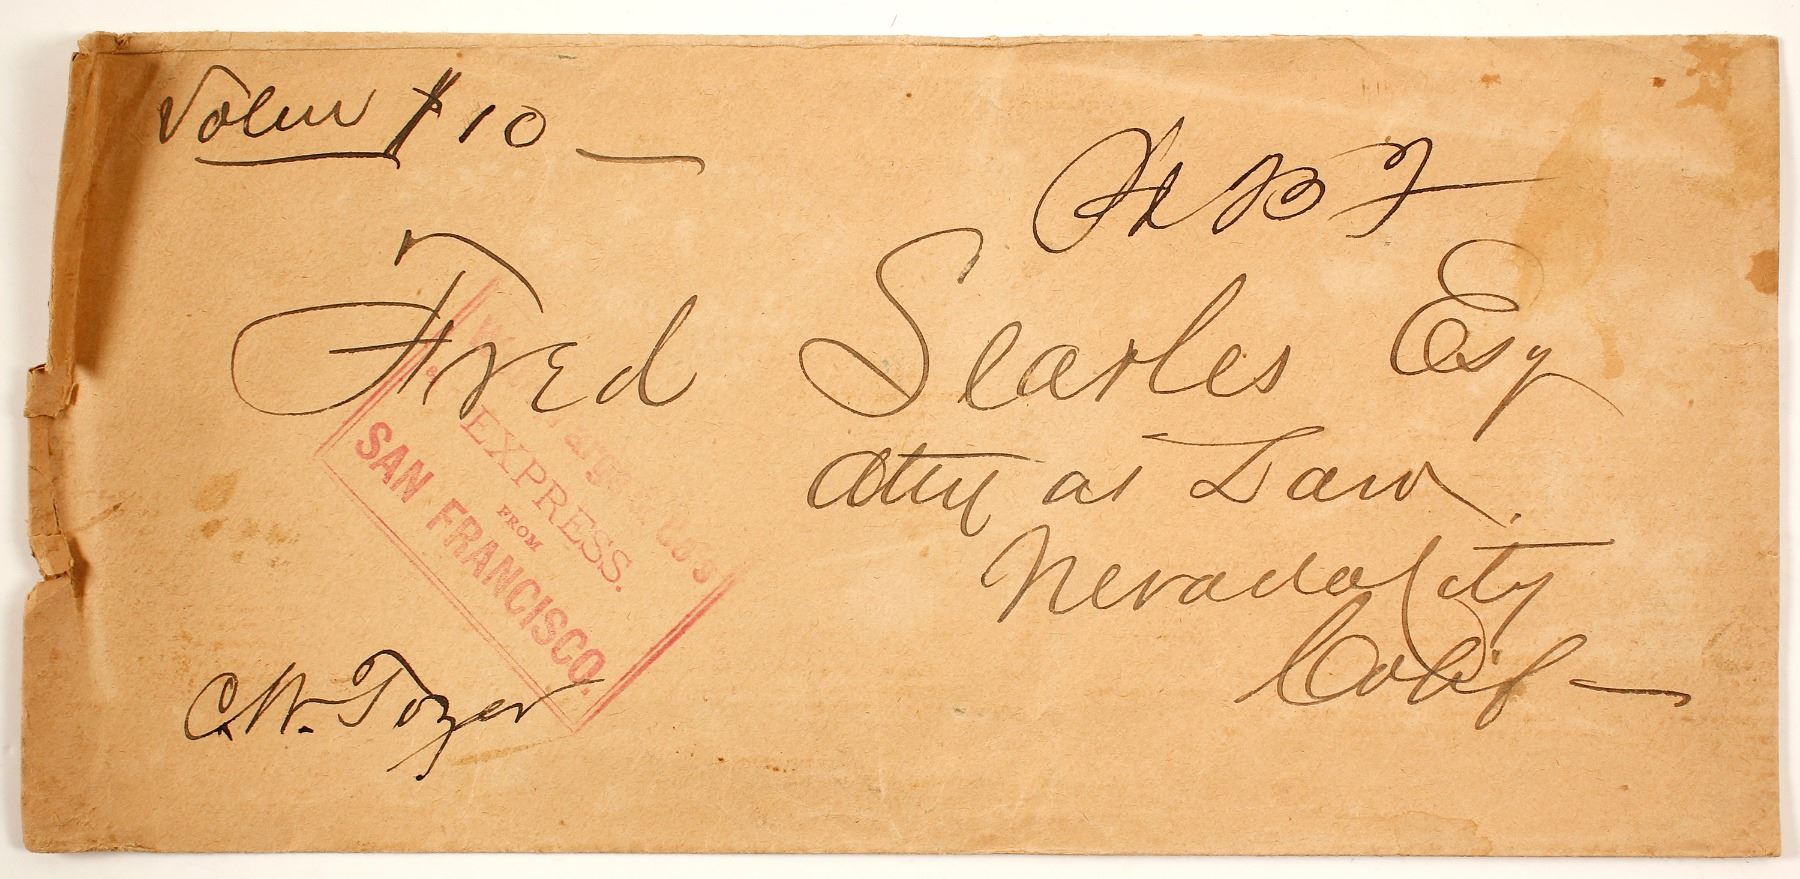 Value $10
Fred Searles Esq
Atty at Law.
Nevada City
Calif
Wells Fargo & Co's
EXPRESS.
FROM
SAN FRANCISCO.
C.W. Tozer